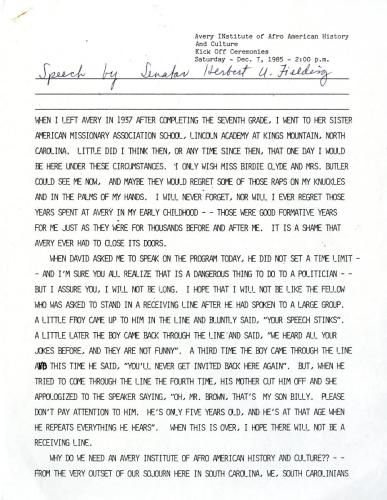 Avery INstitute of Afro American History
And Culture
Kick Off Ceremonies
Saturday - Dec. 7, 1985 - 2:00 p.m.
Speech by Senator Herbert U. Fielding
WHEN I LEFT AVERY IN 1937 AFTER COMPLETING THE SEVENTH GRADE, I WENT TO HER SISTER
AMERICAN MISSIONARY ASSOCIATION SCHOOL, LINCOLN ACADEMY AT KINGS MOUNTAIN, NORTH
CAROLINA. LITTLE DID I THINK THEN, OR ANY TIME SINCE THEN, THAT ONE DAY I WOULD
BE HERE UNDER THESE CIRCUMSTANCES. I ONLY WISH MISS BIRDIE CLYDE AND MRS. BUTLER
COULD SEE ME NOW, AND MAYBE THEY WOULD REGRET SOME OF THOSE RAPS ON MY KNUCKLES
AND IN THE PALMS OF MY HANDS. I WILL NEVER FORGET, NOR WILL I EVER REGRET THOSE
YEARS SPENT AT AVERY IN MY EARLY CHILDHOOD - - THOSE WERE GOOD FORMATIVE YEARS
FOR ME JUST AS THEY WERE FOR THOUSANDS BEFORE AND AFTER ME. IT IS A SHAME THAT
AVERY EVER HAD TO CLOSE ITS DOORS.
WHEN DAVID ASKED ME TO SPEAK ON THE PROGRAM TODAY, HE DID NOT SET A TIME LIMIT -
- AND I'M SURE YOU ALL REALIZE THAT IS A DANGEROUS THING TO DO TO A POLITICIAN - -
BUT I ASSURE YOU, I WILL NOT BE LONG. I HOPE THAT I WILL NOT BE LIKE THE FELLOW
WHO WAS ASKED TO STAND IN A RECEIVING LINE AFTER HE HAD SPOKEN TO A LARGE GROUP.
A LITTLE FROY CAME UP TO HIM IN THE LINE AND BLUNTLY SAID, "YOUR SPEECH STINKS".
A LITTLE LATER THE BOY CAME BACK THROUGH THE LINE AND SAID, "WE HEARD ALL YOUR
JOKES BEFORE, AND THEY ARE NOT FUNNY". A THIRD TIME THE BOY CAME THROUGH THE LINE
AND THIS TIME HE SAID, "YOU'LL NEVER GET INVITED BACK HERE AGAIN". BUT, WHEN HE
TRIED TO COME THROUGH THE LINE THE FOURTH TIME, HIS MOTHER CUT HIM OFF AND SHE
APOLOGIZED TO THE SPEAKER SAYING, "OH, MR. BROWN, THAT'S MY SON BILLY. PLEASE
DON'T PAY ATTENTION TO HIM. HE'S ONLY FIVE YEARS OLD, AND HE'S AT THAT AGE WHEN
HE REPEATS EVERYTHING HE HEARS". WHEN THIS IS OVER, I HOPE THERE WILL NOT BE A
RECEIVING LINE.
WHY DO WE NEED AN AVERY INSTITUTE OF AFRO AMERICAN HISTORY AND CULTURE?? - -
FROM THE VERY OUTSET OF OUR SOJOURN HERE IN SOUTH CAROLINA, WE, SOUTH CAROLINIANS